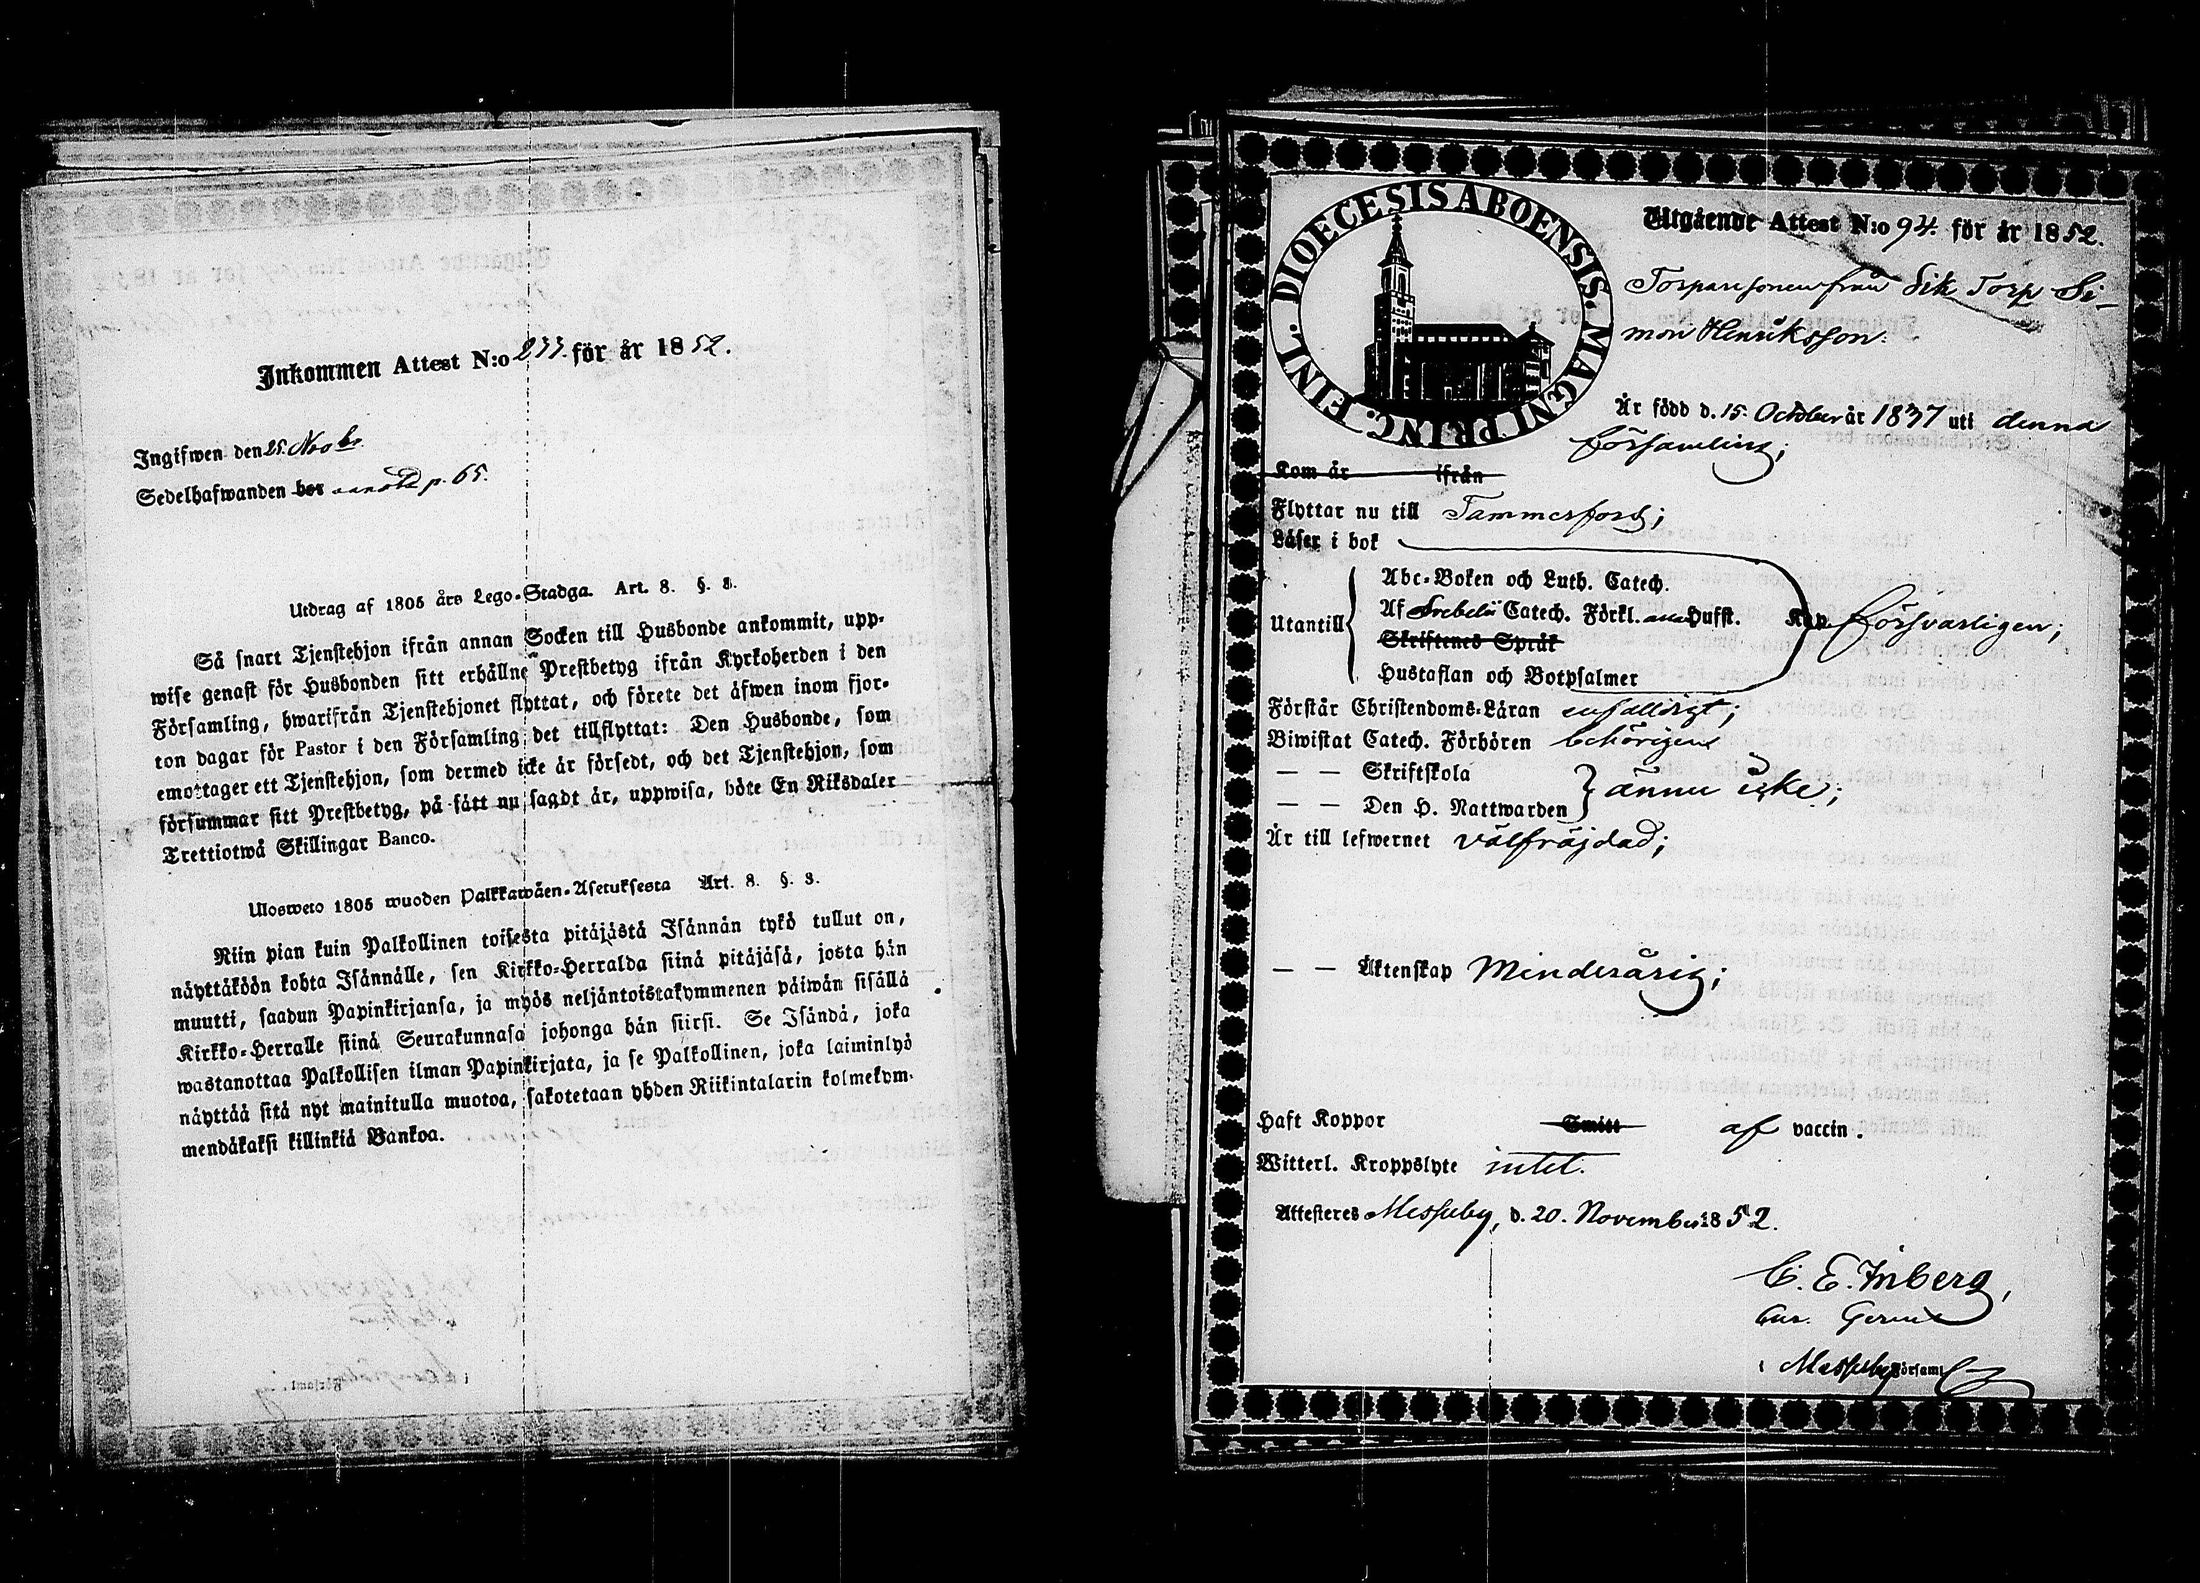 Inkommen Attest N:o 277. för år 1852.
Ingifwen den 25. Novbr
Sedelhafwanden bor p. 65.
Utdrag af 1805 års Lego-Stadga. Art. 8. §. 8.
Så snart Tjenstehjon ifrån annan Socken till Husbonde ankommit, upp-
wise genast för Husbonden sitt erhållne Prestbetyg ifrån Kyrkoherden i den
Församling, hwarifrån Tjenstehjonet flyttat, och förete det äfwen inom fjor-
ton dagar för Pastor i den Församling det tillflyttat: Den Husbonde, som
emottager ett Tjenstehjon, som dermed icke är försedt, och det Tjenstehjon, som
försummar sitt Prestbetyg, på sätt nu sagdt är, uppwisa, böte En Riksdaler
Trettiotwå Skillingar Banco.
Ulosweto 1805 wuoden Palkkawäen-Asetuksesta Art. 8. §. 8.
Niin pian kuin Palkollinen toisesta pitäjästä Isännän tykö tullut on,
näyttäköön kohta Isännälle, sen Kirkko-Herralda siinä pitäjäsä, josta hän
muutti, saadun Papinkirjansa, ja myös neljäntoistakymmenen päiwän sisällä
Kirkko-Herralle siinä Seurakunnasa johonga hän siirsi. Se Isändä, joka
wastanottaa Palkollisen ilman Papinkirjata, ja se Palkollinen, joka laiminlyö
näyttää sitä nyt mainitulla muotoa, sakotetaan yhden Riikintalarin kolmekym-
mendäkaksi killinkiä Bankoa.
DIOECESIS ABOENSIS. MAGNI PRINC. FINL.
Utgående Attest N:o 94. för år 1852.
Torparesonen från Sik Torp Si-
mon Henriksson.
Är född d. 15. October år 1837 uti denna
församling;
Kom år ifrån
Flyttar nu till Tammerfors;
Läser i bok
Utantill
Abc-Boken och Luth. Catech.
Af Svebelii Catech. Förkl. Hufst.
Skriftenes Språk
Hustaflan och Botpsalmer
försvarligen;
Förstår Christendoms-Läran enfalldigt;
Biwistat Catech. Förhören behörigen
— — Skriftskola
— — Den H. Nattwarden
ännu icke;
Är till lefwernet välfräjdad;
— — Äktenskap Minderårig;
Haft Koppor Smitt af vaccin.
Witterl. Kroppslyte intet.
Attesteres Messuby, d. 20. November 1852.
C. E. Inberg,
i Messuby Församl